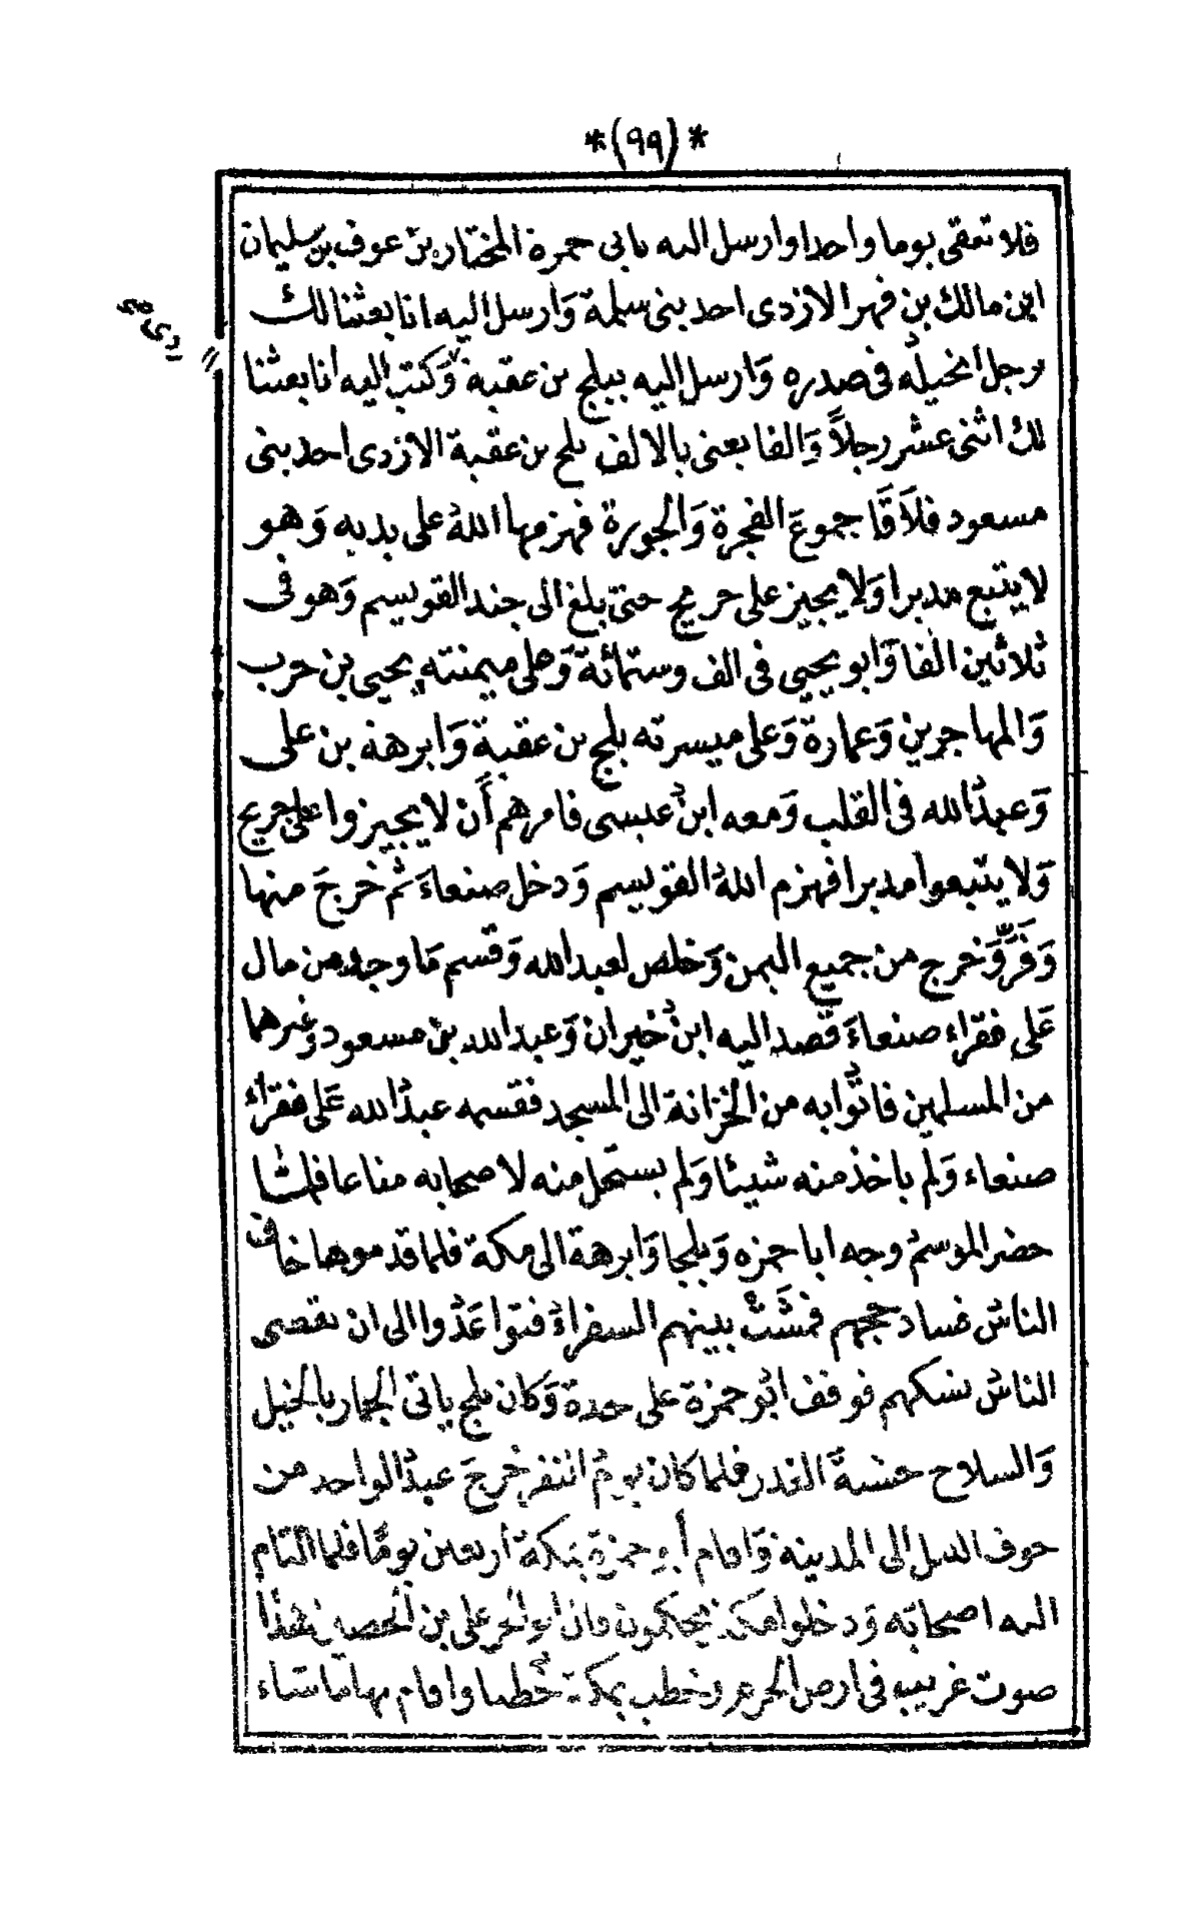 *(٩٩)*
فلا تبقى يوما واحدا وارسل اليه بابى حمزة المختار بن عوف بن سليمان
ابن مالك بن فهر الازدى احد بنى سلمة وَارسل اليه انا بعثنا لك
برجل انجيله فى صدره وَارسل اليه ببلج بن عقبة وَكتب اليه انا بعثنا
لك اثنى عشر رجلاً وَالفا يعنى بالالف بلج بن عقبة الازدى احد بنى
مسعود فلاَقَا جموعَ الفجرة وَالجورة فهزمها اللهُ على يديه وَهو
لا يتبع مدبرا وَلا يجيز على جريح حتى بلغ الى جند القويسم وَهو فى
ثلاثين الفا وَابو يحيى فى الف وستمائة وَعلى ميمنته يحيى بن حرب
وَالمهاجرين وَعمارة وَعلى ميسرته بلج بن عقبة وَابرهة بن على
وَعبدُ الله فى القلب وَمعه ابنُ عيسى فامرهم أَن لا يجيزوا على جريح
وَلا يتبعوا مدبرا فهزم اللهُ القويسم وَدخل صنعاءَ ثم خرجَ منها
وَفَرَّ وَخرج من جميع اليمن وَخلص لعبد الله وَقسم مَا وجد من مال
عَلى فقراء صنعاءَ قصد اليه ابنُ خيران وَعبد الله بن مسعود وغيرهما
من المسلمين فاتوا به من الخزانة الى المسجد فقسمه عبدُ الله عَلى فقراء
صنعاء وَلم ياخذ منه شيئا وَلم يستحل منه لاصحابه متاعا فلما
حضر الموسمُ وجه ابا حمزه وَبلجا وَابرهة الى مكة فلما قدموها خاف
الناسُ فساد حجهم فمشَتْ بينهم السفراءُ فتواعَدُوا الى ان يقضى
الناسُ نسكهم فوقف ابُو حمزة على حدة وَكان بلج ياتى الجمار بالخيل
وَالسلاح خشيةَ الغدر فلما كان يومُ النفر خرجَ عبدُ الواحد من
جوف الليل الى المدينة وَاقام أبو حمزة بمكة أربعين يومًا فلما التام
اليه اصحابه وَدخلوا مكة يحكمون قال ابو الحر على بن الحصين هذا
صوت غريب فى ارض الحرم وخطب بمكة خُطبا واقام بها ما شاء